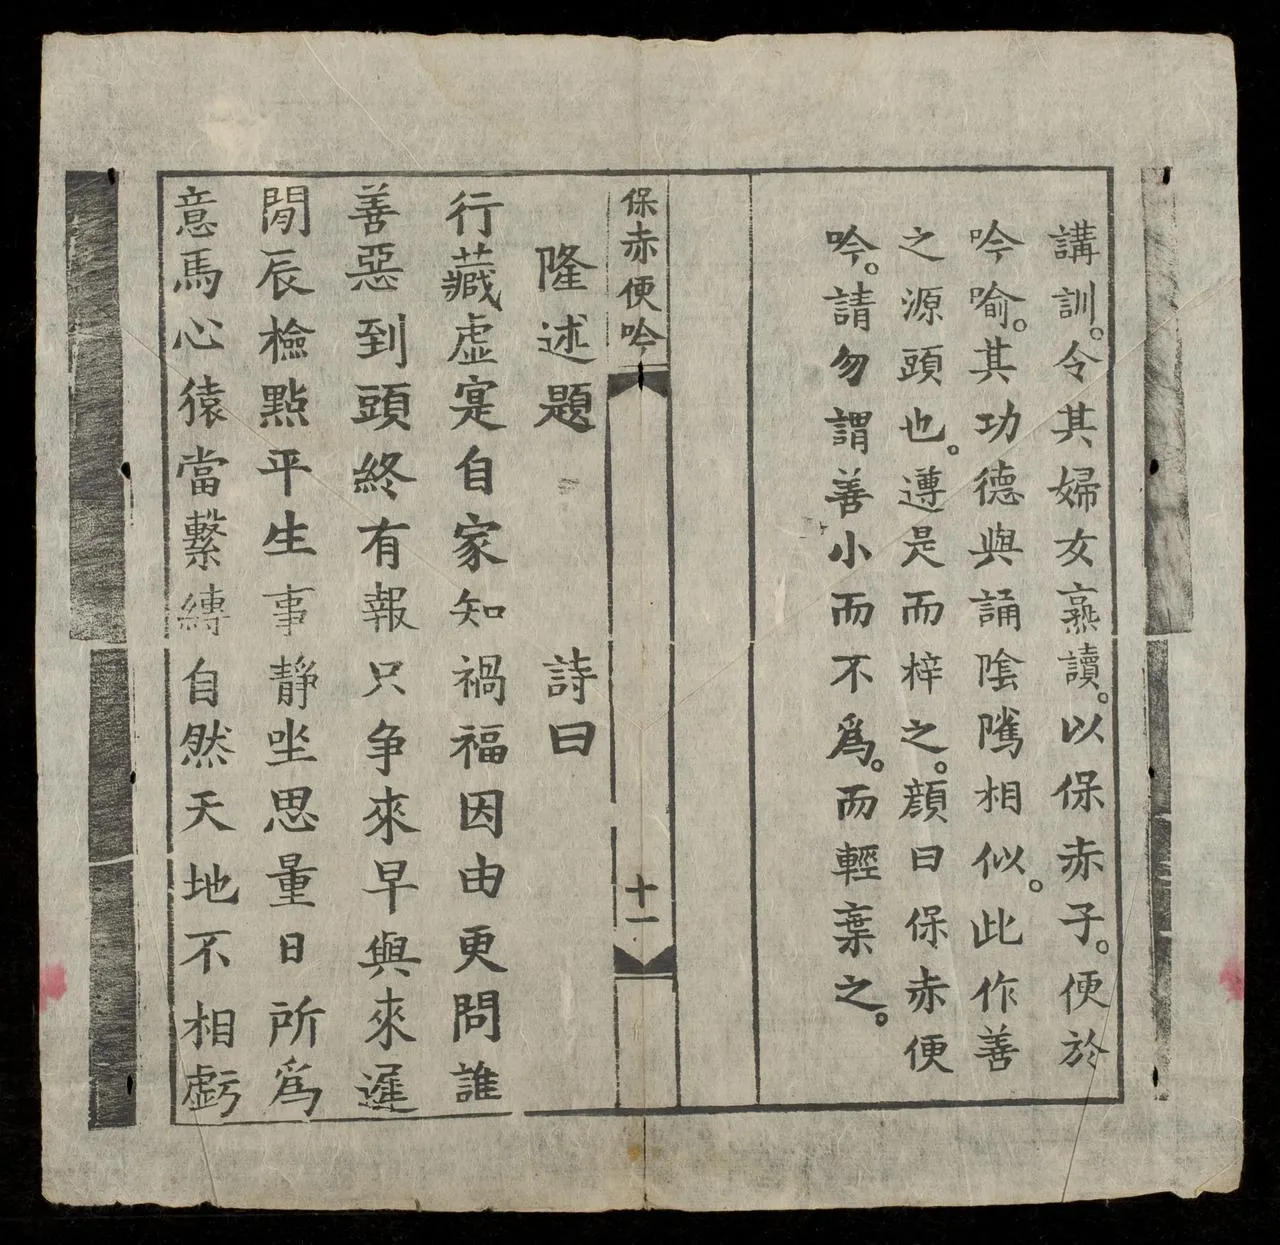 講訓。令其婦女熹讀。以保赤子。便於
吟喻。其功德與誦陰隲相似。此作善
之源頭也。遵是而梓之。顔曰保赤便
吟。請勿謂善小而不爲。而輕棄之。
保赤便吟
十一
隆述題 詩曰
行藏虛寔自家知禍福因由更問誰
善惡到頭終有報只争來早與來遲
閒辰檢點平生事靜坐思量日所爲
意馬心猿當繫縛自然天地不相虧